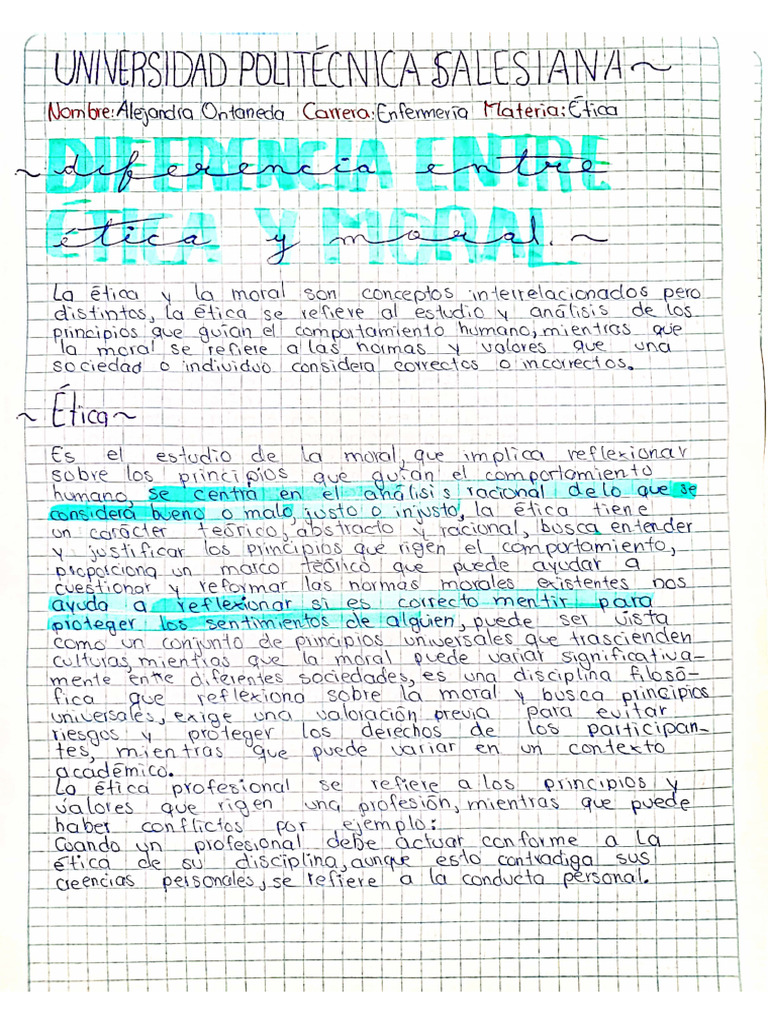 UNIVERSIDAD POLITÉCNICA SALESIANA~
Nombre: Alejandra Ontaneda Carrera: Enfermería Materia: Ética
~diferencia entre
ética y moral.~
La ética y la moral son conceptos interrelacionados pero
distintos, la ética se refiere al estudio y análisis de los
principios que guían el comportamiento humano, mientras que
la moral se refiere a las normas y valores que una
sociedad o individuo considera correctos o incorrectos.
~Ética~
Es el estudio de la moral, que implica reflexionar
sobre los principios que guían el comportamiento
humano, se centra en el análisis racional de lo que se
considera bueno o malo, justo o injusto, la ética tiene
un carácter teórico, abstracto y racional, busca entender
y justificar los principios que rigen el comportamiento,
proporciona un marco teórico que puede ayudar a
cuestionar y reformar las normas morales existentes nos
ayuda a reflexionar si es correcto mentir para
proteger los sentimientos de alguien, puede ser vista
como un conjunto de principios universales que trascienden
culturas, mientras que la moral puede variar significativa-
mente entre diferentes sociedades, es una disciplina filosó-
fica que reflexiona sobre la moral y busca principios
universales, exige una valoración previa para evitar
riesgos y proteger los derechos de los participan-
tes, mientras que puede variar en un contexto
académico.
La ética profesional se refiere a los principios y
valores que rigen una profesión, mientras que puede
haber conflictos por ejemplo:
Cuando un profesional debe actuar conforme a la
ética de su disciplina, aunque esto contradiga sus
creencias personales, se refiere a la conducta personal.